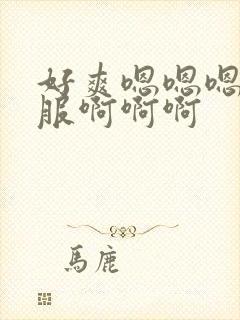 好爽嗯嗯嗯
服啊啊啊
馬鹿